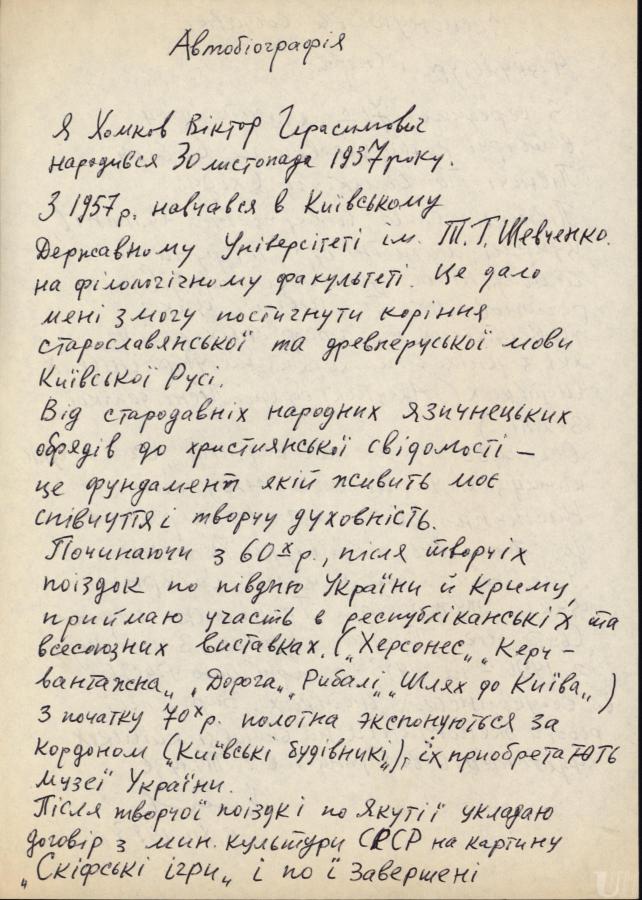 Автобіографія
Я Хомков Віктор Герасимович
народився 30 листопада 1937 року.
З 1957 р. навчався в Київському
Державному Універсітеті ім. Т.Г. Шевченко.
на філологічному факультеті. Це дало
мені змогу постигнути коріння
старославянської та древнеруської мови
Київської Русі.
Від стародавніх народних язичнецьких
обрядів до християнської свідомості –
це фундамент якій живить моє
співчуття і творчу духовність.
Починаючи з 60х р., після творчіх
поїздок по півдню України й Криму,
приймаю участь в республіканських та
всесоюзних виставках. („Херсонес„ „Керч –
вантажна„ „Дорога„ „Рибалі„ „Шлях до Київа„)
З початку 70х р. полотна экспонуються за
кордоном („Київські будівникі„), їх приобретають
музеї України.
Після творчої поїздкі по Якутії укладаю
договір з мин. культури СРСР на картину
„Скіфські ігри„ і по ї завершені